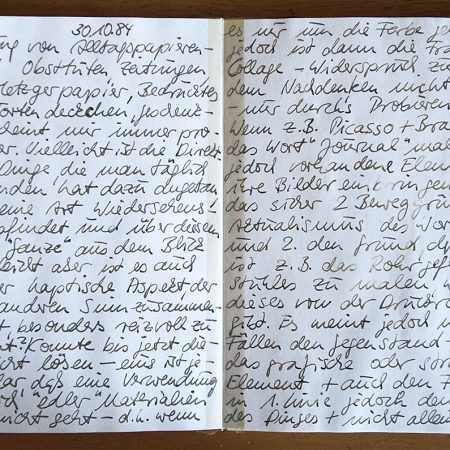 30.10.84
ung von Alltagspapieren-
Obsttüten, Zeitungen
Metzgerpapier, Bedrucktes
Torten deckchen, Geschenk-
scheint mir immer pro-
er. Vielleicht ist die Direkt-
Dinge die man täglich
anden hat dazu angetan
eine Art Wiedersehens!
pfindet und über diesem
"Ganze" aus dem Blick
leicht aber ist es auch
er haptische Aspekt der
anderen Sinnzusammen-
t besonders reizvoll zu
t? Konnte bis jetzt die-
icht lösen - eins ist je-
lar, daß eine Verwendung
"edler" Materialien
nicht geht - d.h. wenn
es mir um die Farbe ge
jedoch ist dann die Fra
Collage - Widerspruch zu
dem Nachdenken nicht
- nur durch's Probieren
Wenn z.B. Picasso + Bra
das Wort "Journal" mal
jedoch vorhandene Elem
ihre Bilder einbringen
das sicher 2 Beweggrün
Aktualismus des Wor
und 2. den Grund, da
ist z.B. das Rohrgefl
stuhles zu malen, w
dieses von der Druckere
gibt. Es meint jedoch in
Fällen den Gegenstand -
das grafische oder stru
Element + auch den F
in 1. Linie jedoch den
des Dinges + nicht allein